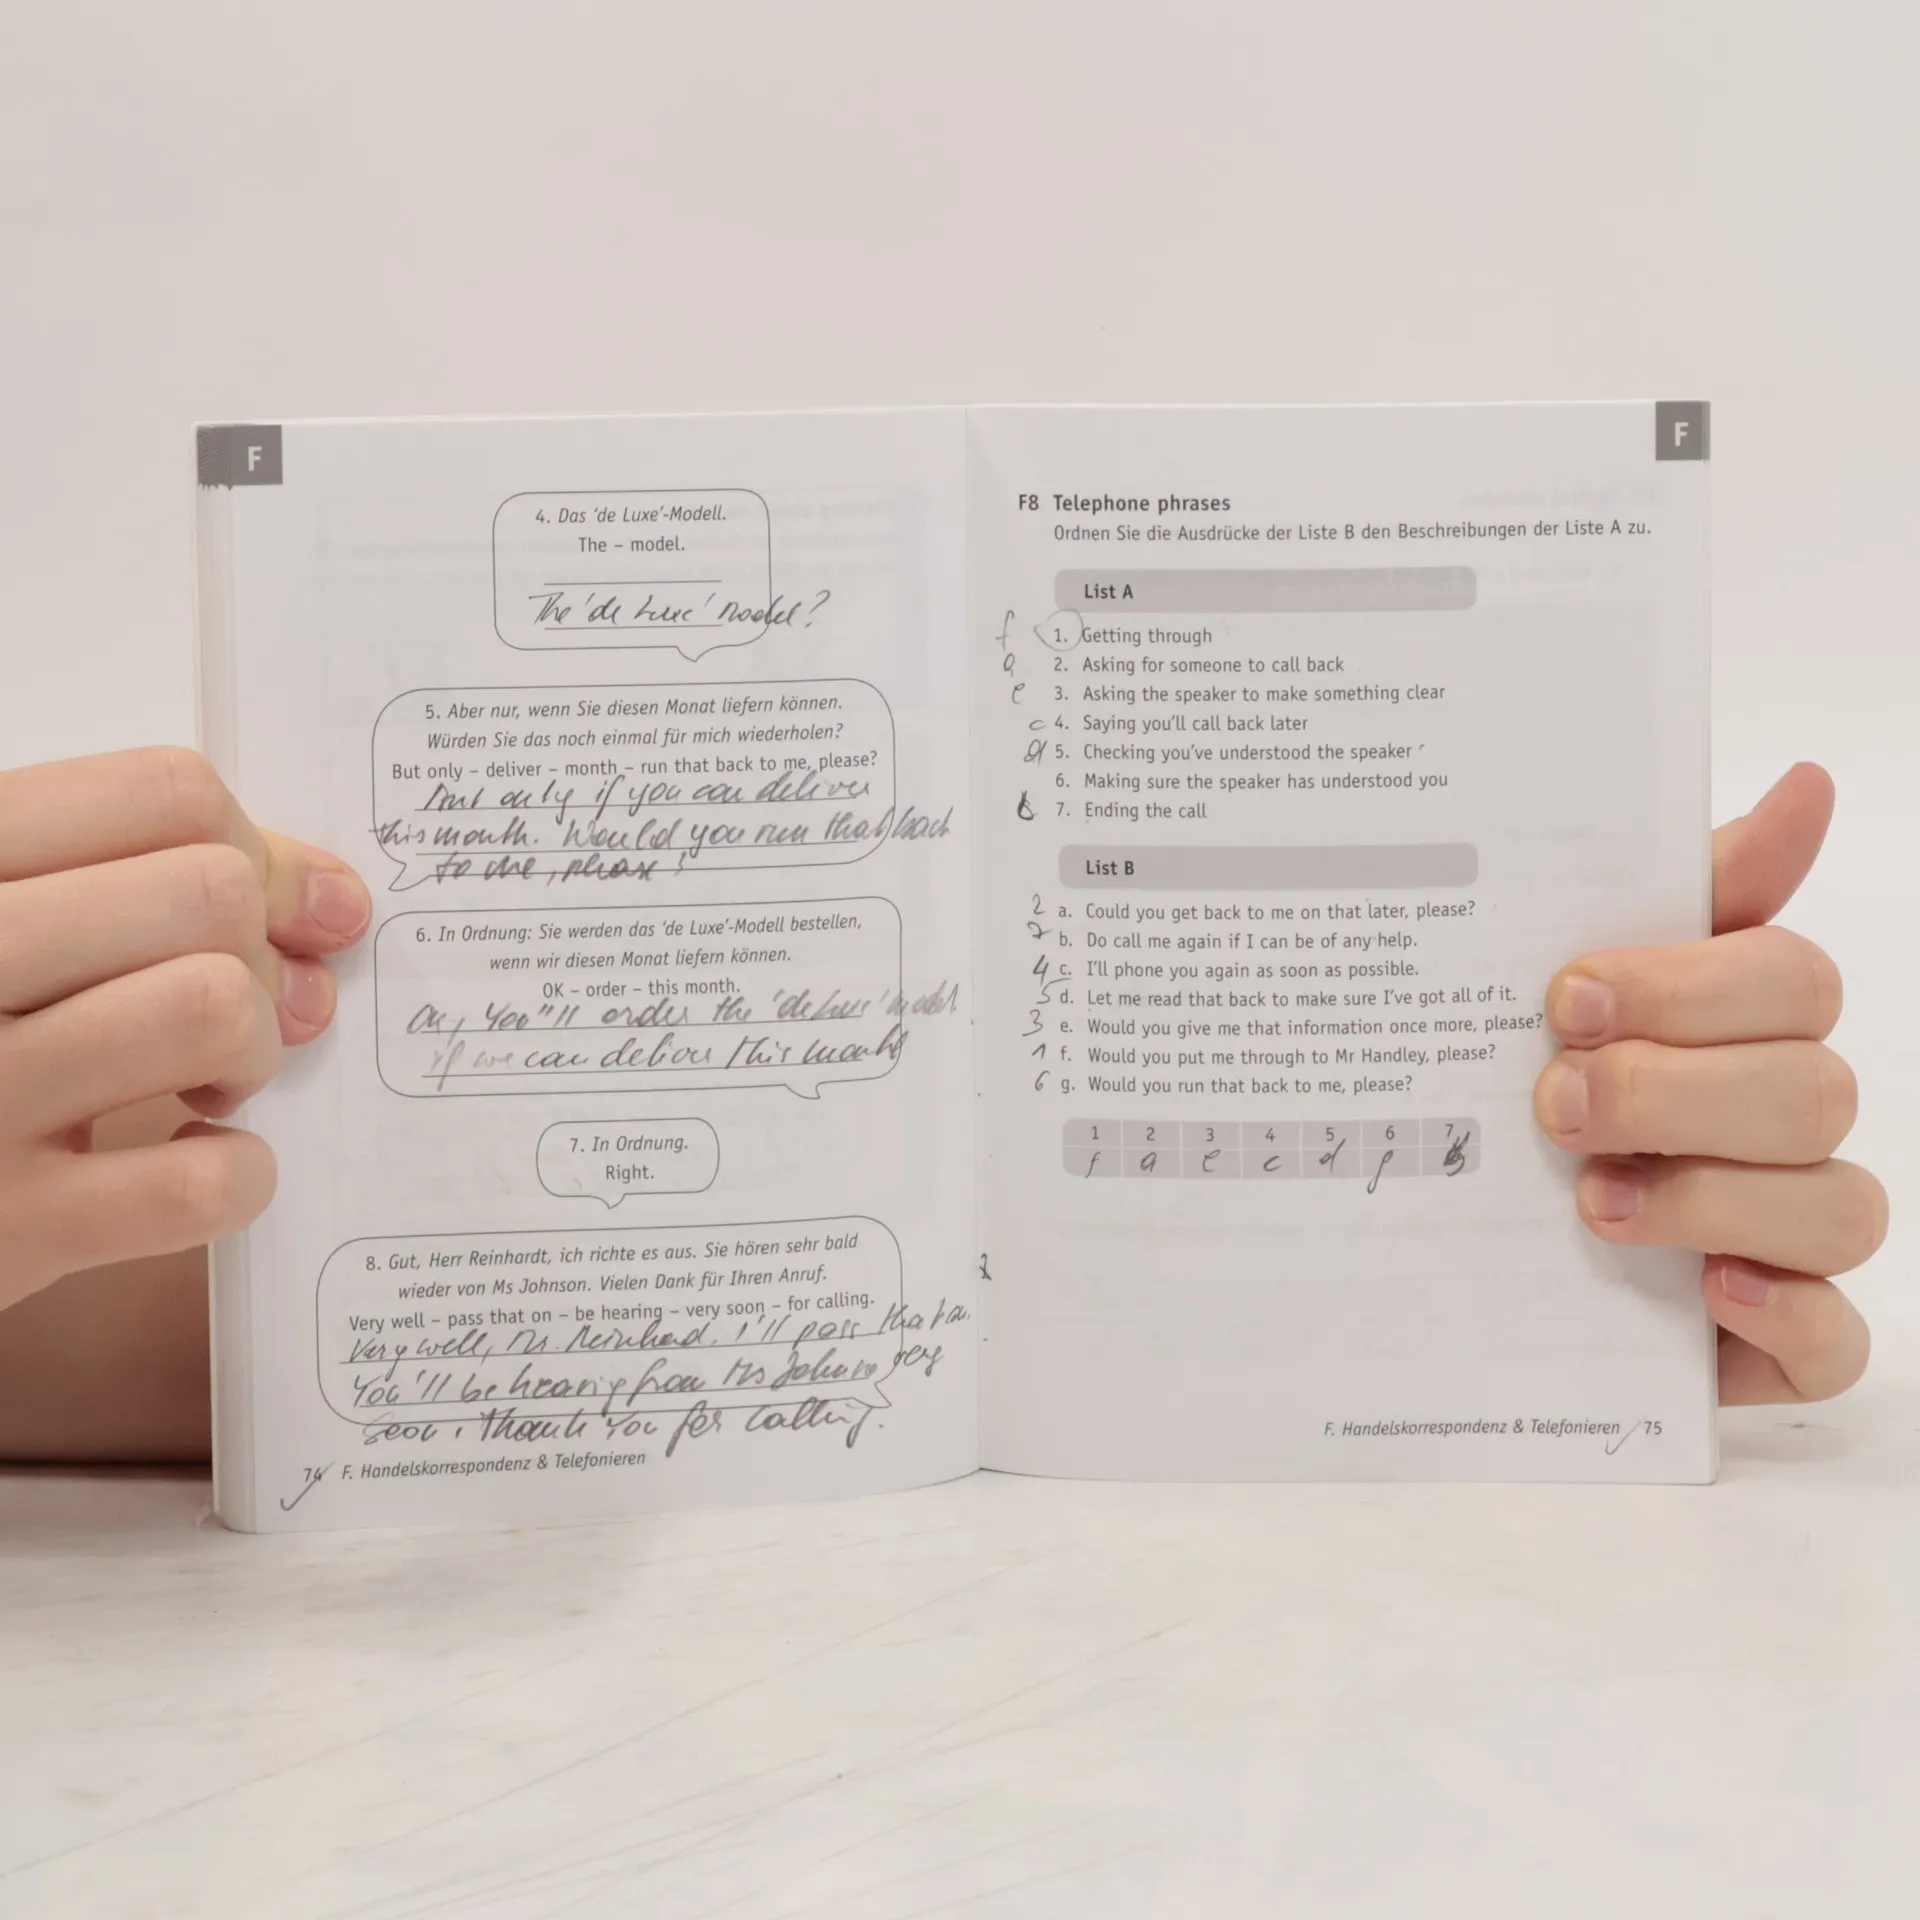 F
4. Das ‘de Luxe’-Modell.
The – model.
The 'de Luxe' model?
5. Aber nur, wenn Sie diesen Monat liefern können.
Würden Sie das noch einmal für mich wiederholen?
But only – deliver – month – run that back to me, please?
But only if you can deliver
this month. Would you run that back
to me, please?
6. In Ordnung: Sie werden das ‘de Luxe’-Modell bestellen,
wenn wir diesen Monat liefern können.
OK – order – this month.
OK, You"ll order the 'de Luxe' model
if we can deliver this month
7. In Ordnung.
Right.
8. Gut, Herr Reinhardt, ich richte es aus. Sie hören sehr bald
wieder von Ms Johnson. Vielen Dank für Ihren Anruf.
Very well – pass that on – be hearing – very soon – for calling.
Very well, Mr. Reinhard. I'll pass that on.
You'll be hearing from Ms Johnson very
soon, thank you for calling.
74 F. Handelskorrespondenz & Telefonieren
F
F8 Telephone phrases
Ordnen Sie die Ausdrücke der Liste B den Beschreibungen der Liste A zu.
List A
f 1. Getting through
a 2. Asking for someone to call back
e 3. Asking the speaker to make something clear
c 4. Saying you’ll call back later
d 5. Checking you’ve understood the speaker
6. Making sure the speaker has understood you
b 7. Ending the call
List B
2 a. Could you get back to me on that later, please?
7 b. Do call me again if I can be of any help.
4 c. I’ll phone you again as soon as possible.
5 d. Let me read that back to make sure I’ve got all of it.
3 e. Would you give me that information once more, please?
1 f. Would you put me through to Mr Handley, please?
6 g. Would you run that back to me, please?
1 2 3 4 5 6 7
f a e c d g b
F. Handelskorrespondenz & Telefonieren 75